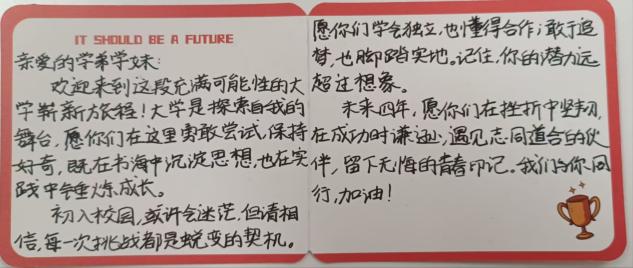 IT SHOULD BE A FUTURE
亲爱的学弟学妹:
欢迎来到这段充满可能性的大
学崭新旅程!大学是探索自我的
舞台,愿你们在这里勇敢尝试,保持
好奇,既在书海中沉淀思想,也在实
践中锤炼成长。
初入校园,或许会迷茫,但请相
信,每一次挑战都是蜕变的契机。
愿你们学会独立,也懂得合作;敢于追
梦,也脚踏实地。记住,你的潜力远
超过想象。
未来四年,愿你们在挫折中坚韧,
在成功时谦逊;遇见志同道合的伙
伴,留下无悔的青春印记。我们与你同
行,加油!